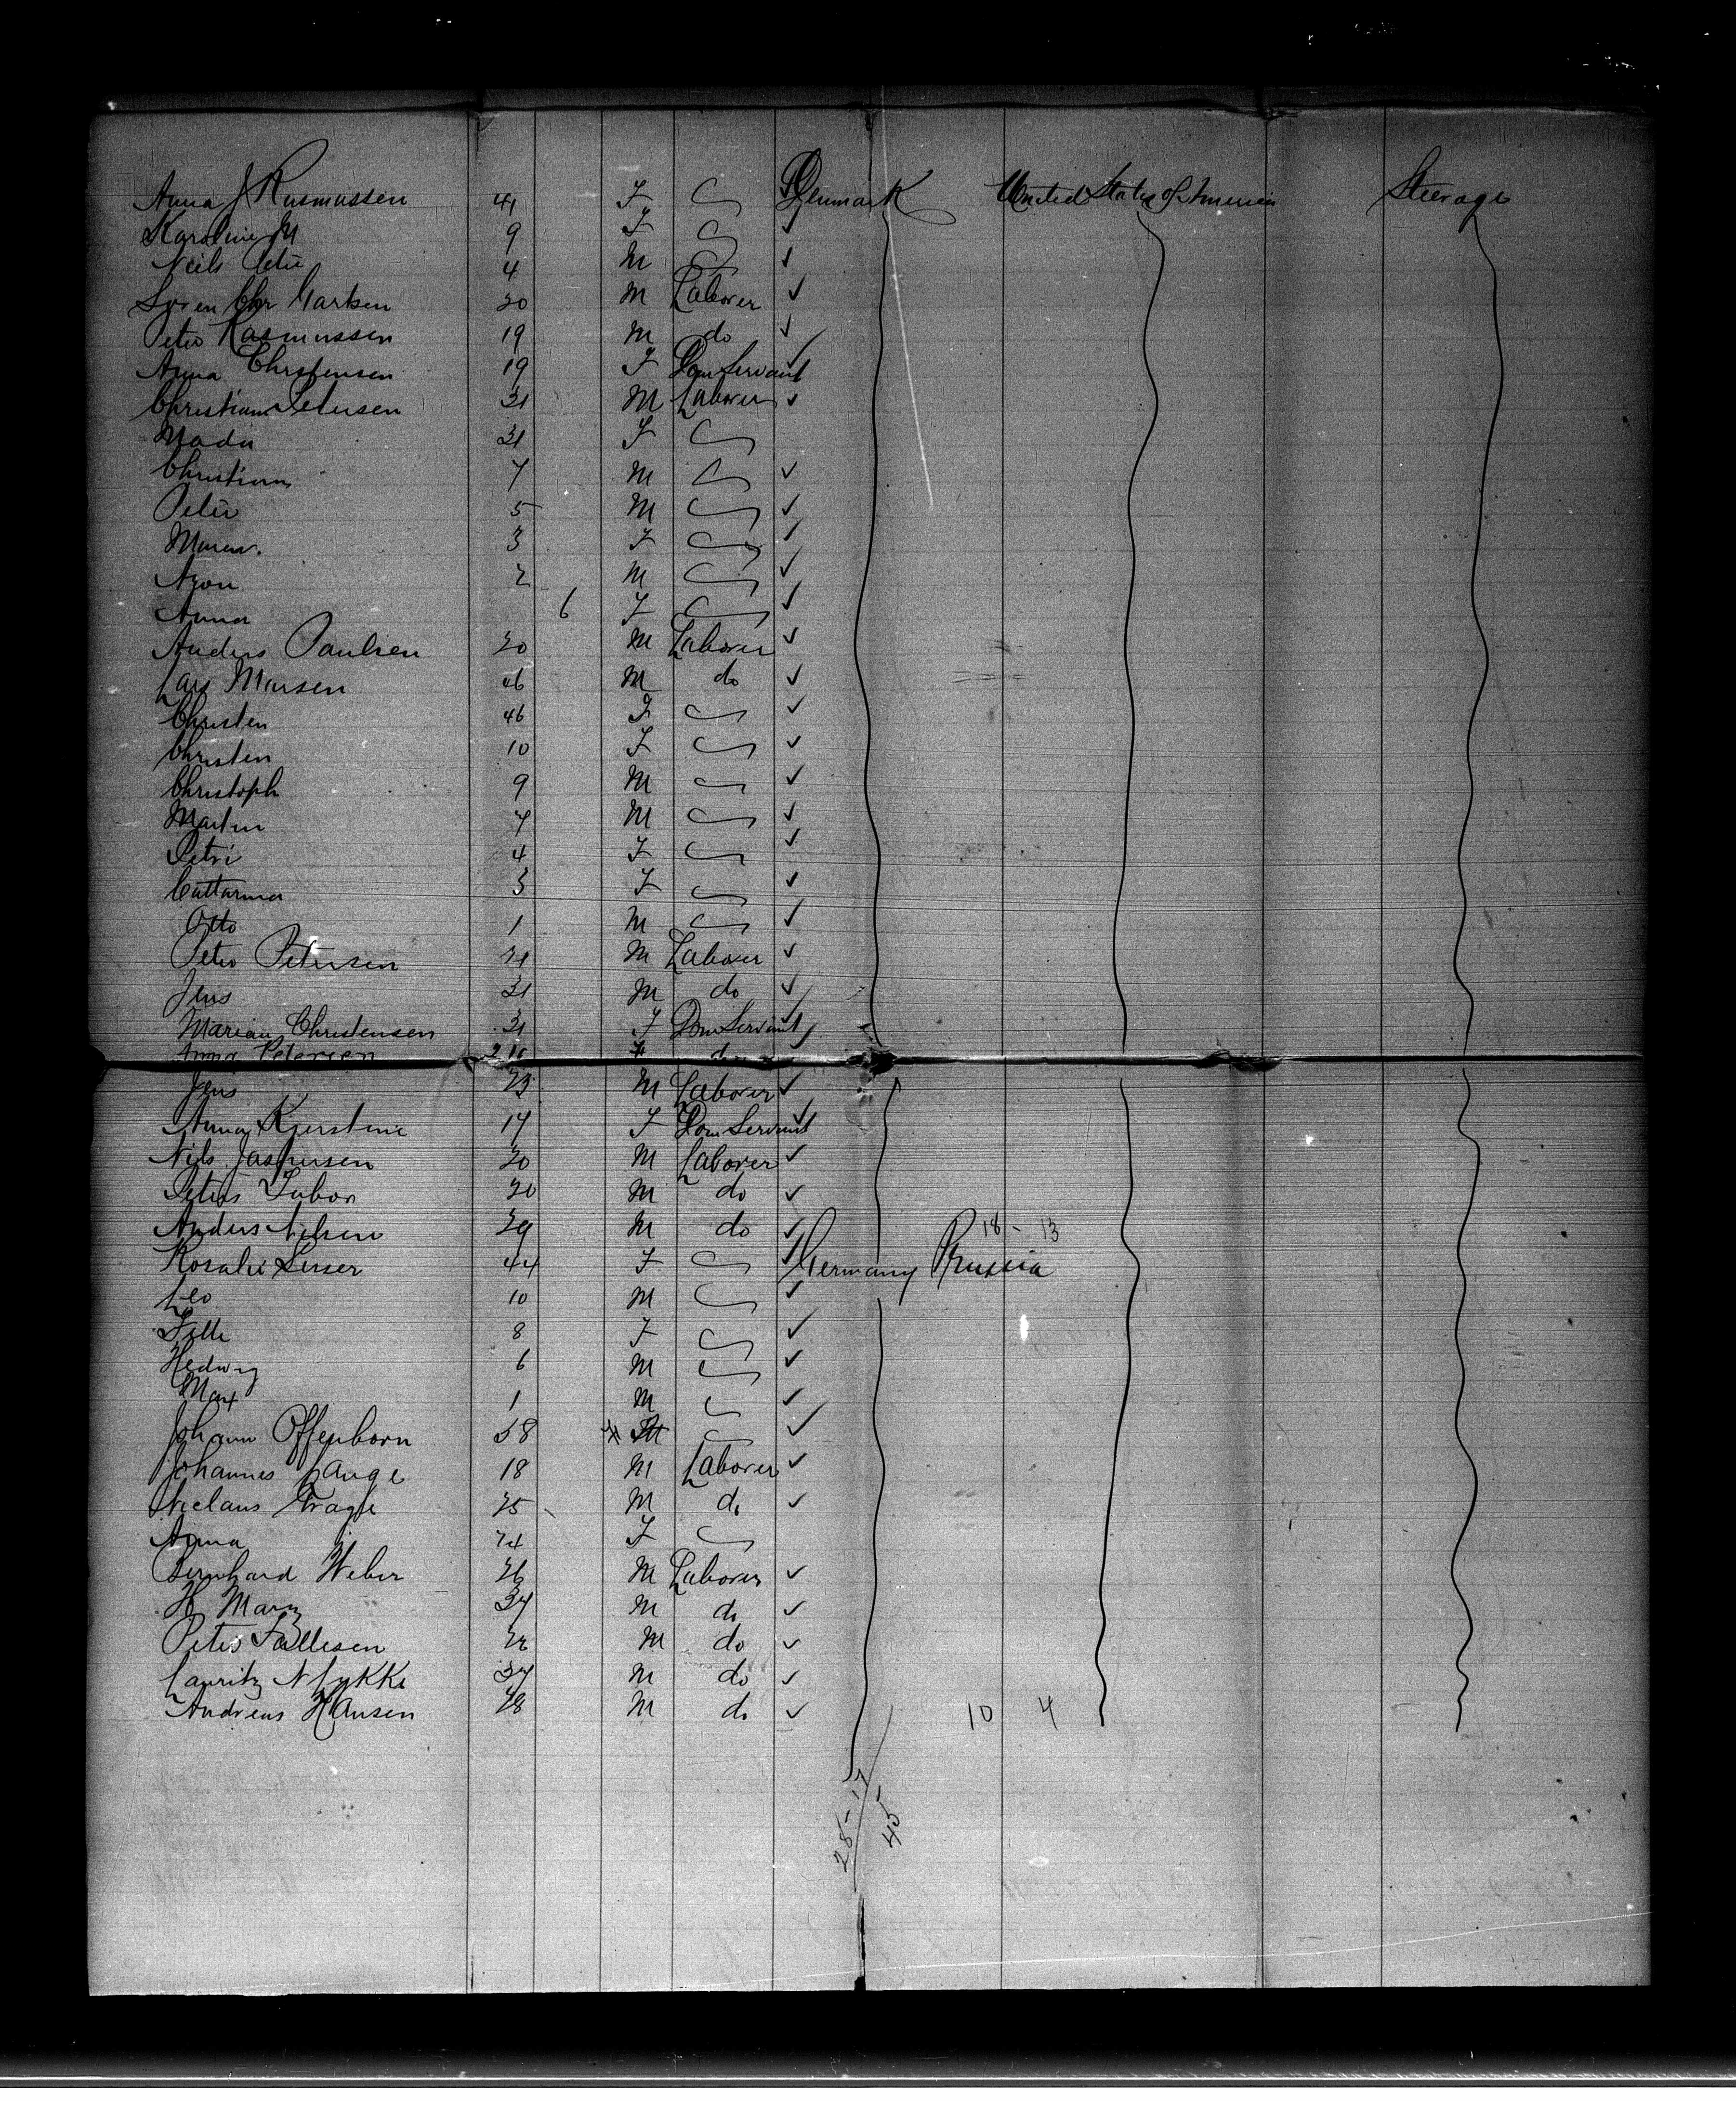 Anna J Rasmussen 41 F Denmark United States of America Steerage
Karoline M 9 F
Neils Peter 4 M
Soren Chr 20 M Laborer
Peter Rasmussen 19 M do
Anna Christensen 19 F Dom Servant
Christian Petersen 31 M Laborer
31 F
Christian 7 M
Peter 5 M
Maren 3 F
2 M
Anna 6 F
Anders Paulsen 20 M Laborer
Lars 46 M do
Christen 46 F
Christen 10 F
Christoph 9 M
Martin 7 M
Petri 4 F
Cattarina 3 F
Otto 1 M
Peter Petersen M Laborer
Jens 21 M do
Marian Christensen F Dom Servant
Anna Petersen do
Jens 23 M Laborer
Anna Kjerstine 17 F Dom Servant
Nils Jaspersen 20 M Laborer
Peter 20 M do
Anders Nilsen 29 M do 18 - 13
Rosalie Lesser 44 F Germany Prussia
Leo 10 M
8 F
Hedwig 6 M
Max 1 M
Johann Offenborn 58 M
Johannes Lange 18 M Laborer
Nielaus 25 M do
Anna 24 F
Bernhard Weber 26 M Laborer
H Marx 34 M do
Peter Fallesen 22 M do
Lauritz N Lykke 37 M do
Andreas Hansen 28 M do 10 4
28 - 17
45